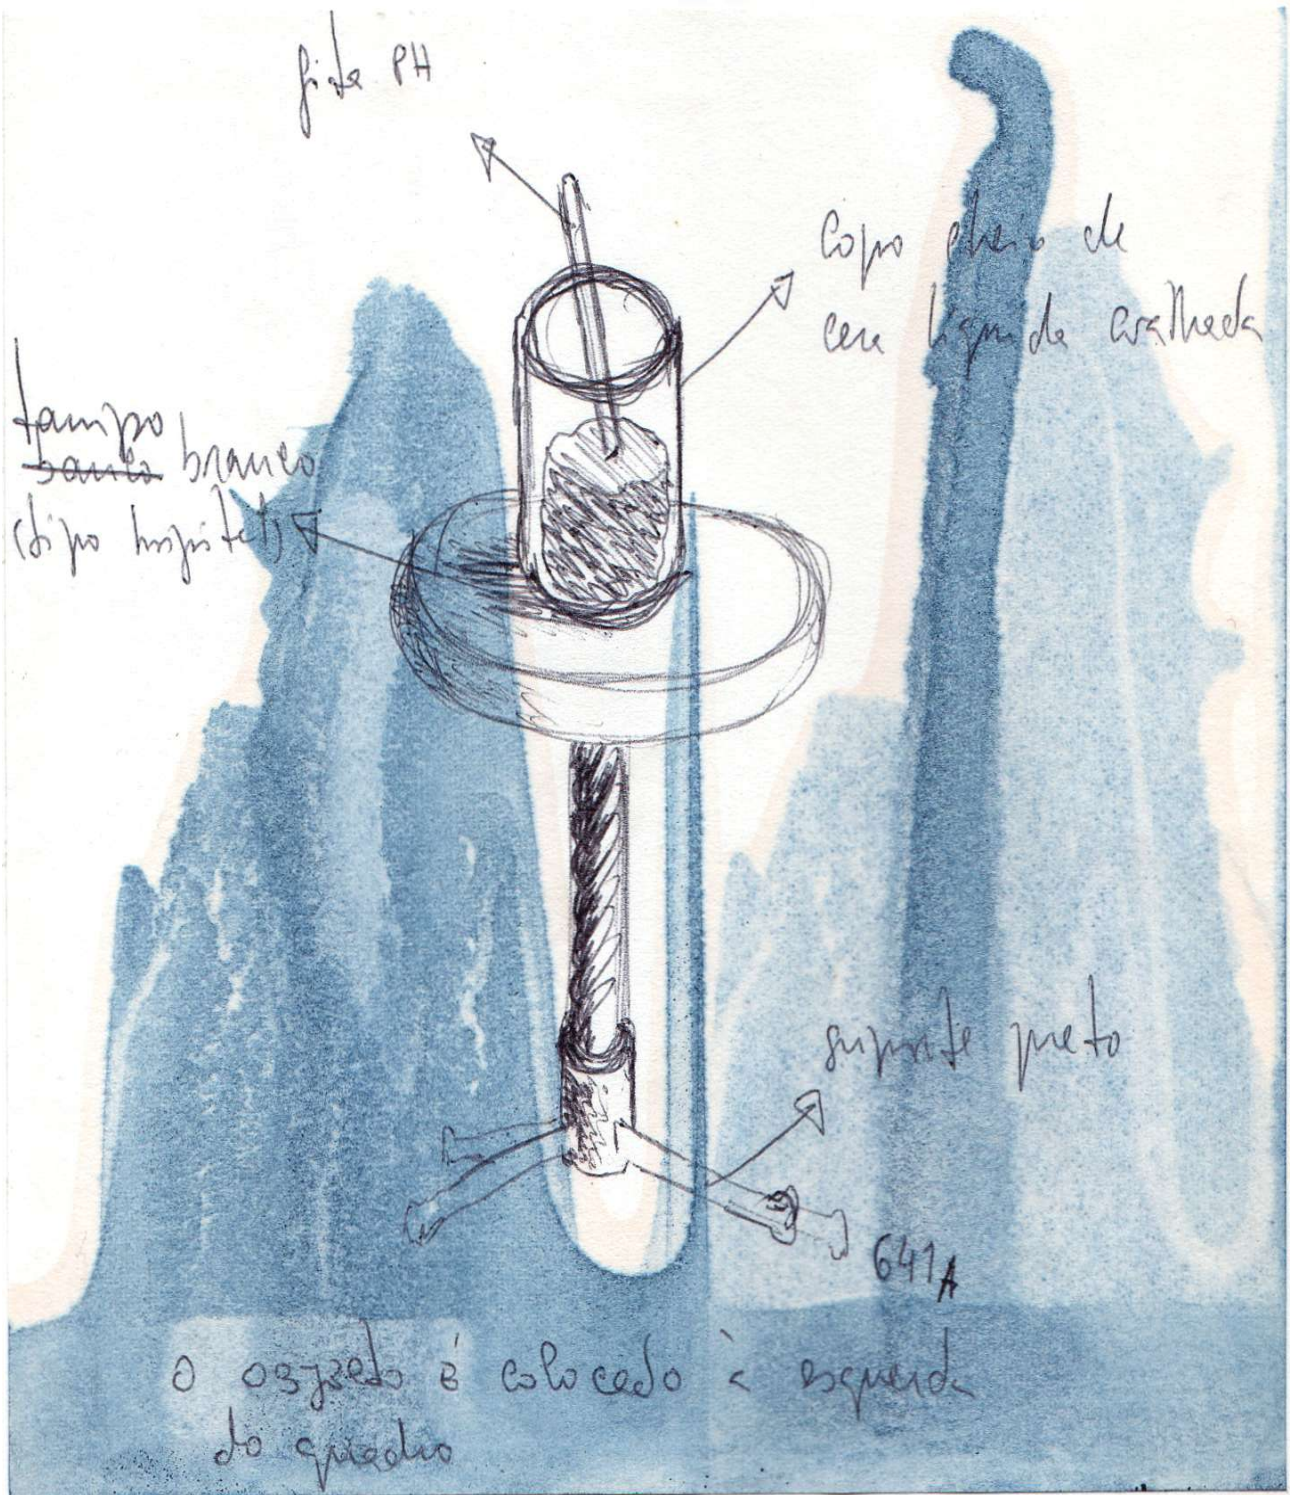 fita PH
copo cheio de
cera líquida coalhada
tampo
banco branco
(tipo hospital)
suporte preto
641A
o objeto é colocado à esquerda
do quadro